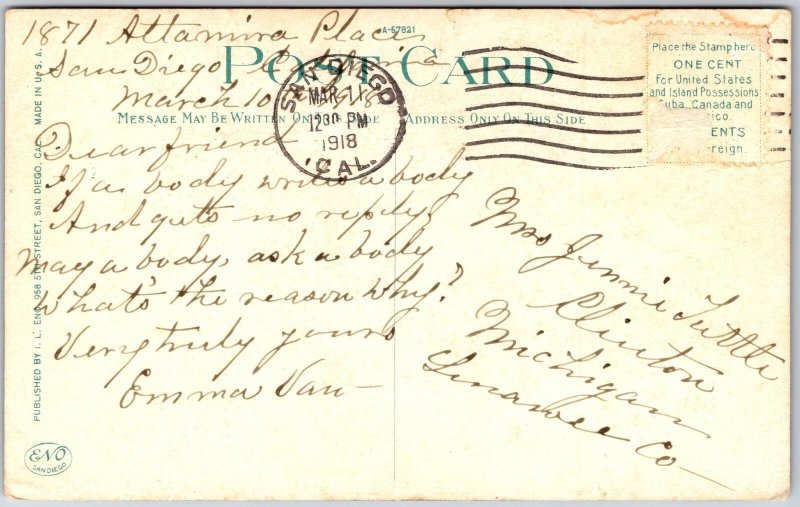 A-57821
1871 Altamira Place
San Diego California
March 10 1918
POST CARD
MESSAGE MAY BE WRITTEN ON THIS SIDE
ADDRESS ONLY ON THIS SIDE
SAN DIEGO
MAR 11
12 30 PM
1918
CAL.
Place the Stamp here
ONE CENT
for United States
and Island Possessions
Cuba, Canada and
ico.
ENTS
reign.
Dear friend
If a body writes a body
And gets no reply,
May a body, ask a body
What's the reason why?
Very truly yours
Emma Van
Mrs Jennie Tuttle
Clinton
Michigan
Lenawee Co
PUBLISHED BY I. L. ENO, 958 5TH STREET, SAN DIEGO, CAL. MADE IN U. S. A.
ENO
SAN DIEGO